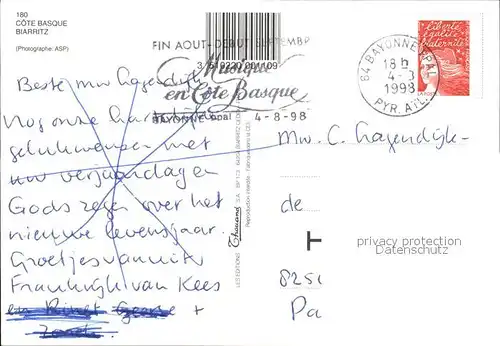 180
CÔTE BASQUE
BIARRITZ
(Photographe: ASP)
FIN AOUT-DEBUT SEPTEMBR
Musique
en Côte Basque
4-8-98
64 BAYONNE PPAL
18 h
4-8
1998
PYR. ATL.
liberté
égalité
fraternité
LES EDITIONS Thouand S.A.
Reproduction interdite
Beste mw Hagendijk
Nog onze hartelijke
gelukwensen met
uw verjaardag en
Gods zegen over het
nieuwe levensjaar.
Groetjes vanuit
Frankrijk van Kees
+
Mw. C. Hagendijk-
de
T
privacy protection
Datenschutz
825
Pa